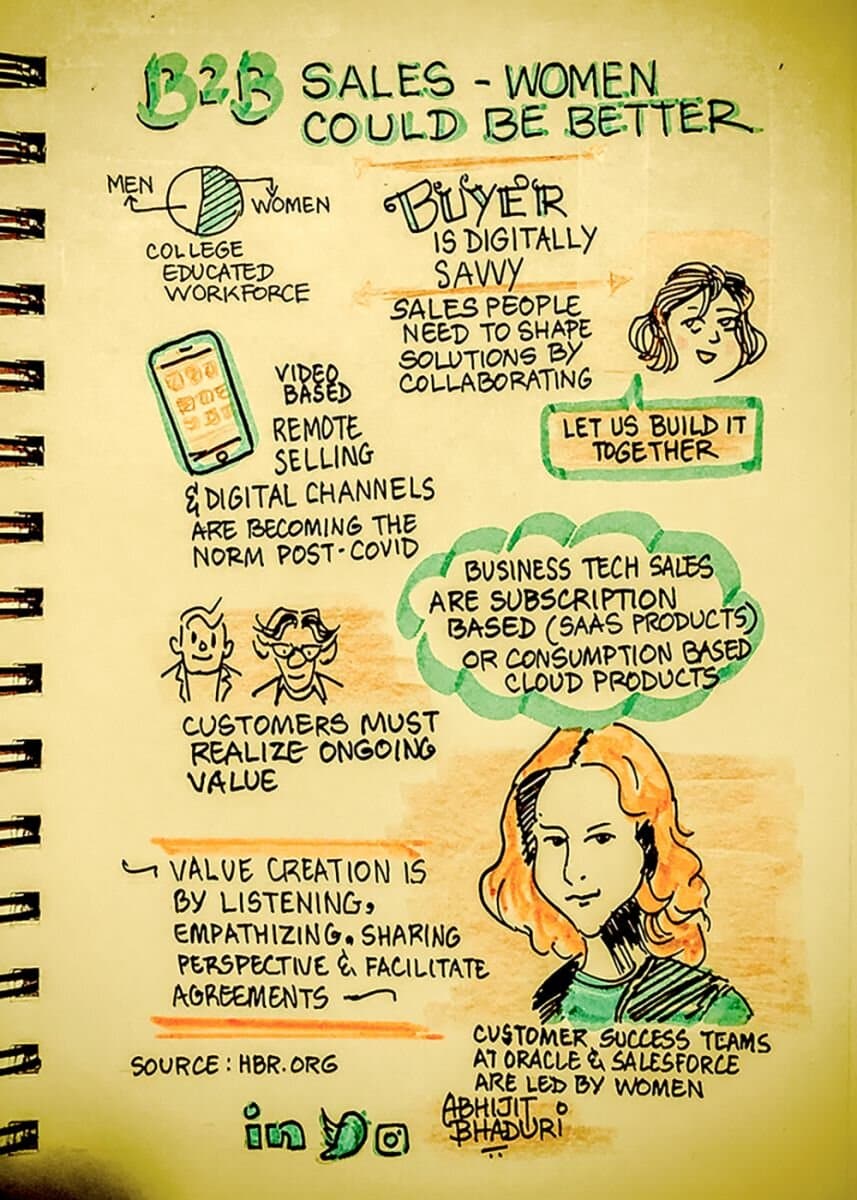 B2B SALES - WOMEN
COULD BE BETTER
MEN
WOMEN
COLLEGE
EDUCATED
WORKFORCE
BUYER
IS DIGITALLY
SAVVY
SALES PEOPLE
NEED TO SHAPE
SOLUTIONS BY
COLLABORATING
LET US BUILD IT
TOGETHER
VIDEO
BASED
REMOTE
SELLING
& DIGITAL CHANNELS
ARE BECOMING THE
NORM POST-COVID
BUSINESS TECH SALES
ARE SUBSCRIPTION
BASED (SAAS PRODUCTS)
OR CONSUMPTION BASED
CLOUD PRODUCTS
CUSTOMERS MUST
REALIZE ONGOING
VALUE
VALUE CREATION IS
BY LISTENING,
EMPATHIZING, SHARING
PERSPECTIVE & FACILITATE
AGREEMENTS
CUSTOMER SUCCESS TEAMS
AT ORACLE & SALESFORCE
ARE LED BY WOMEN
SOURCE: HBR.ORG
in
ABHIJIT
BHADURI